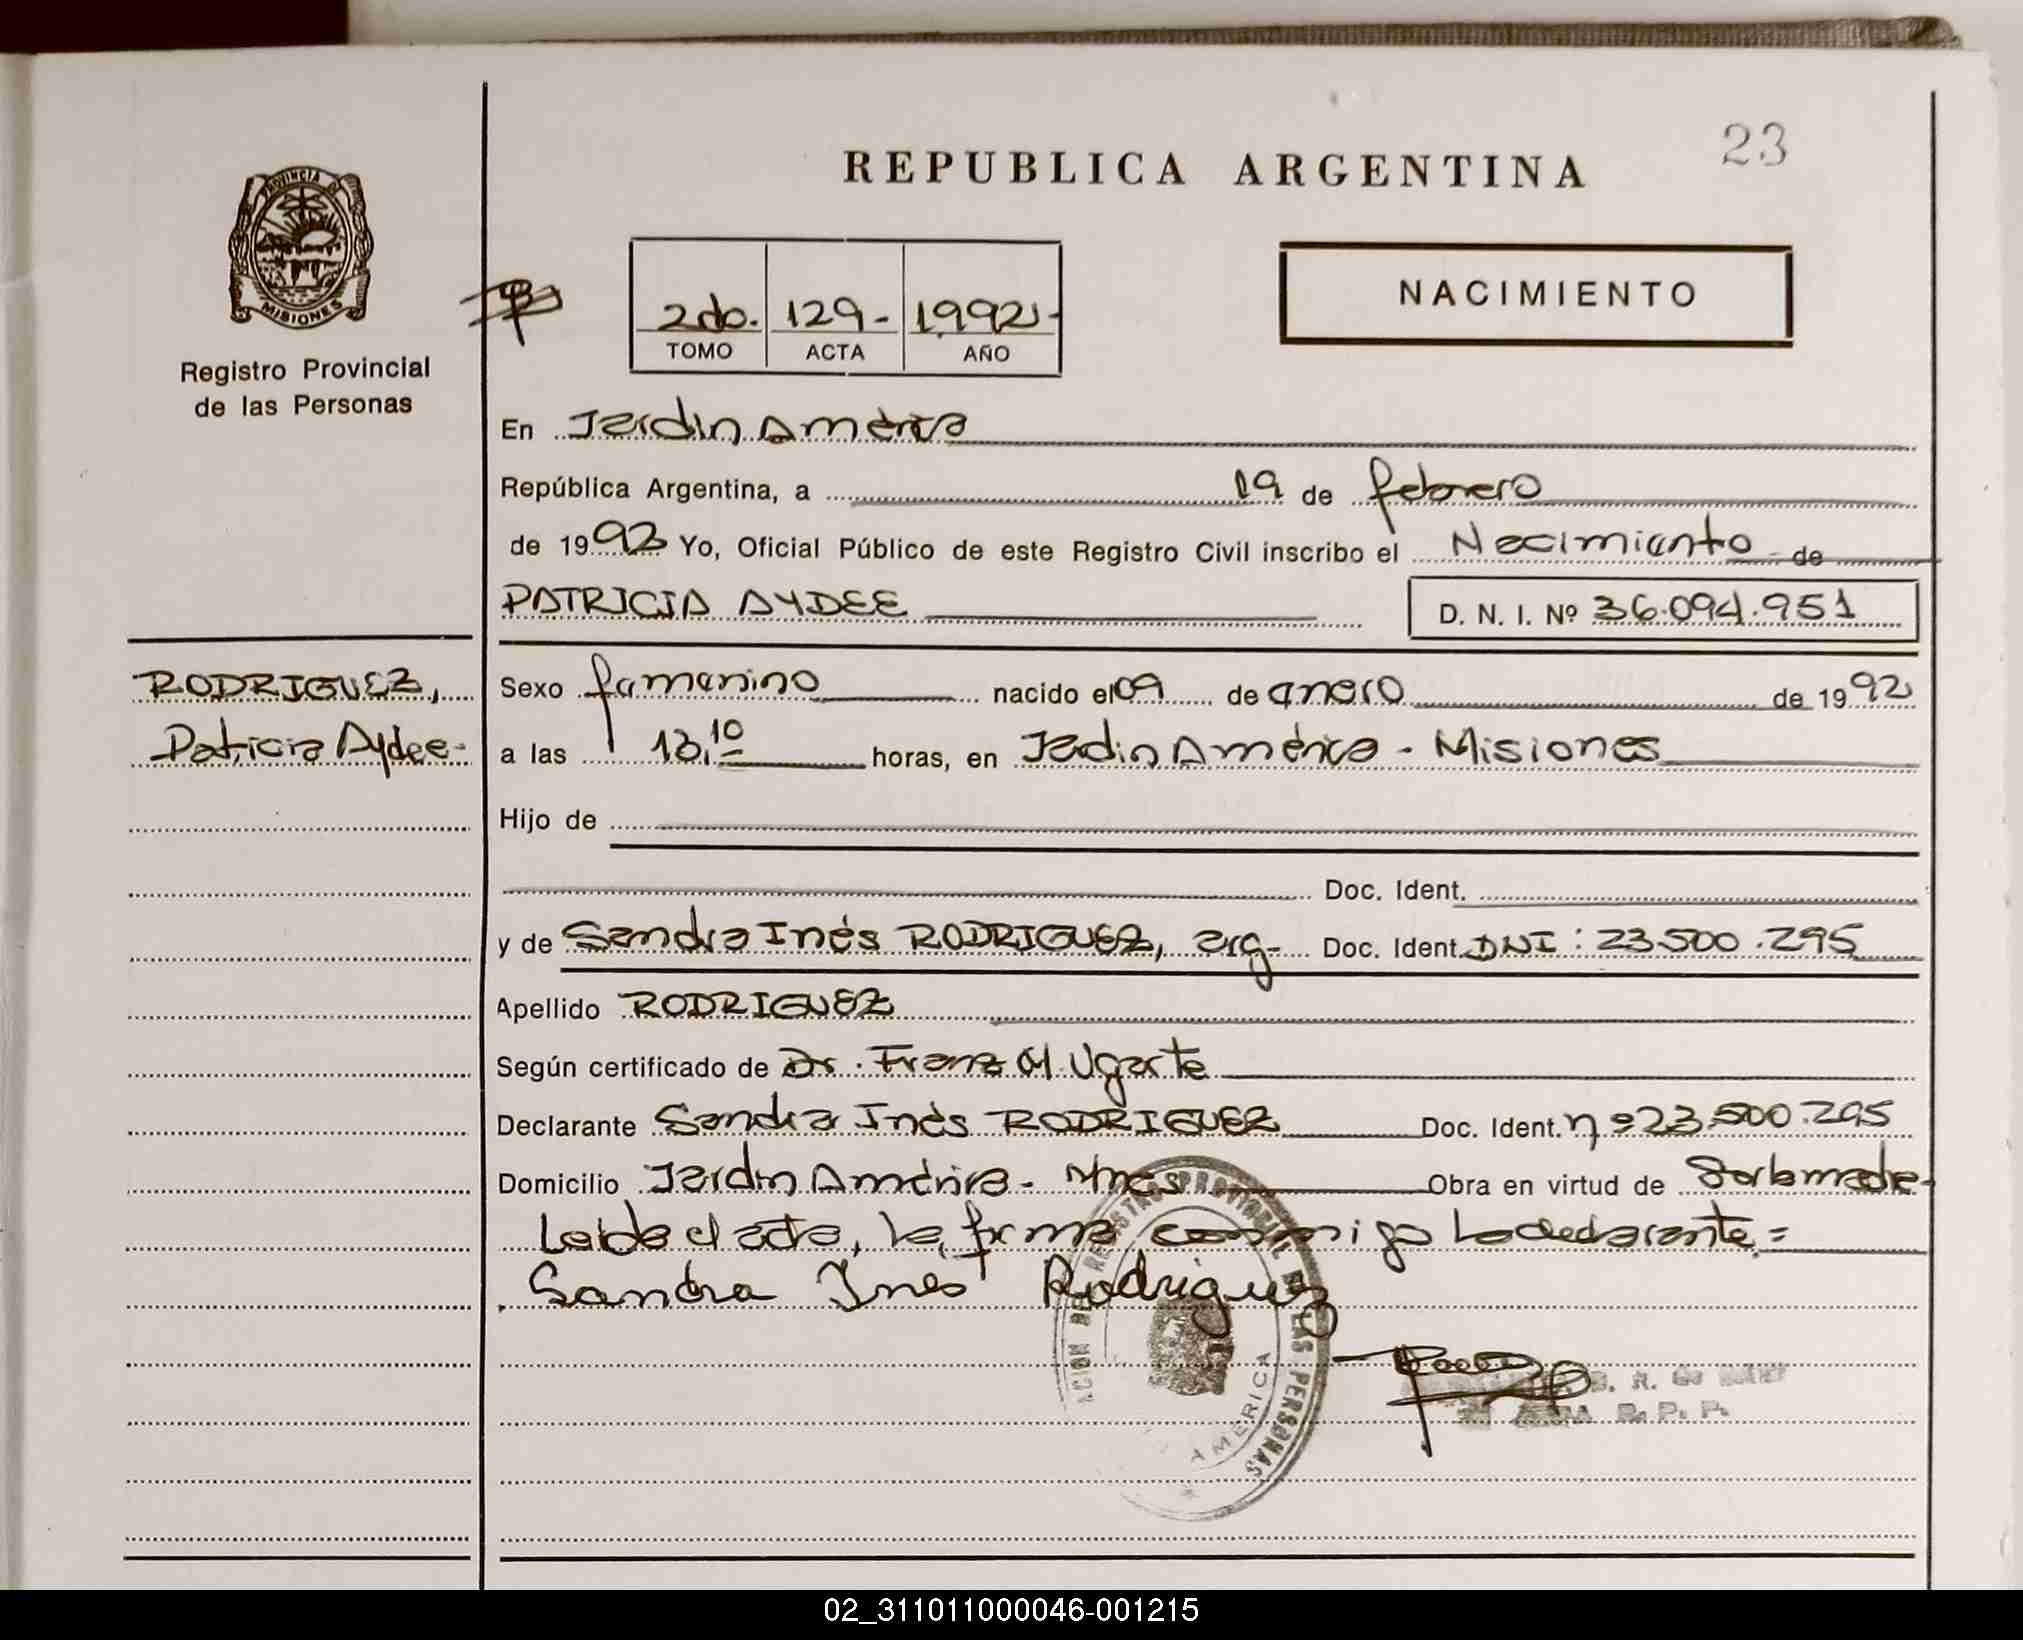 23
REPUBLICA ARGENTINA
PROVINCIA DE
MISIONES
Registro Provincial
de las Personas
NACIMIENTO
2do. 129- 1992-
TOMO ACTA AÑO
En Jardin América
República Argentina, a 19 de febrero
de 1992 Yo, Oficial Público de este Registro Civil inscribo el Nacimiento de
PATRICIA AYDEE D. N. I. Nº 36.094.951
RODRIGUEZ,
Patricia Aydee-
Sexo femenino nacido el 09 de enero de 1992
a las 13,10 horas, en Jardin América - Misiones
Hijo de
Doc. Ident.
y de Sandra Inés RODRIGUEZ, arg- Doc. Ident. DNI: 23.500.295
Apellido RODRIGUEZ
Según certificado de Dr. Franz M. Ugarte
Declarante Sandra Inés RODRIGUEZ Doc. Ident. nº 23.500.295
Domicilio Jardin América - Mnes Obra en virtud de Ser la madre-
Leida el acta, la firma conmigo la declarante=
Sandra Inés Rodriguez
REGISTRO PROVINCIAL DE LAS PERSONAS
AMERICA
R. P. P.
02_311011000046-001215